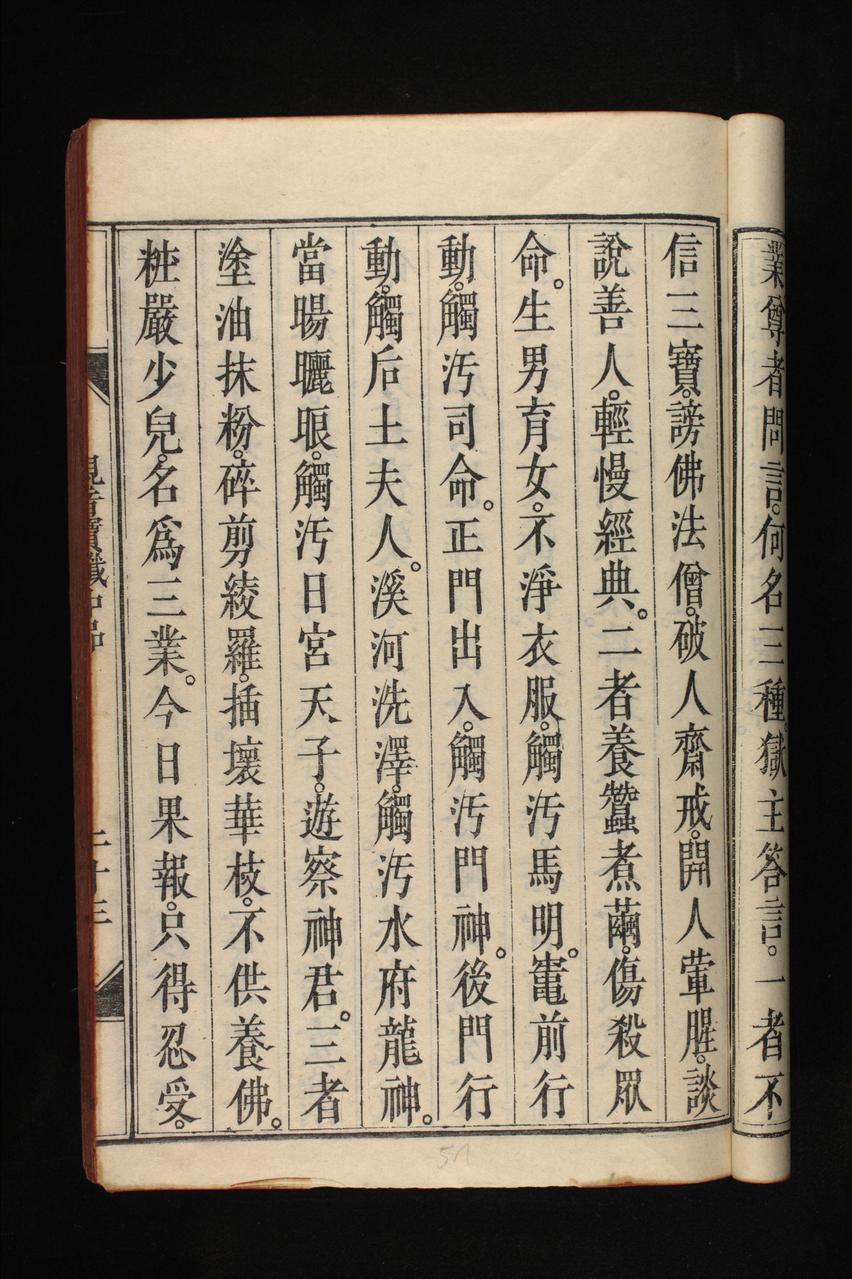 業尊者問言。何名三種。獄主答言。一者不
信三寶。謗佛法僧。破人齋戒。開人葷腥。談
說善人。輕慢經典。二者養蠶煮繭。傷殺眾
命。生男育女。不淨衣服。觸汚馬明。竈前行
動。觸汚司命。正門出入。觸汚門神。後門行
動。觸后土夫人。溪河洗澤。觸汚水府龍神。
當暘曬眼。觸汚日宮天子。遊察神君。三者
塗油抹粉。碎剪綾羅。插壞華枝。不供養佛。
粧嚴少兒。名爲三業。今日果報。只得忍受。
觀音寶懺中品
二十三
51